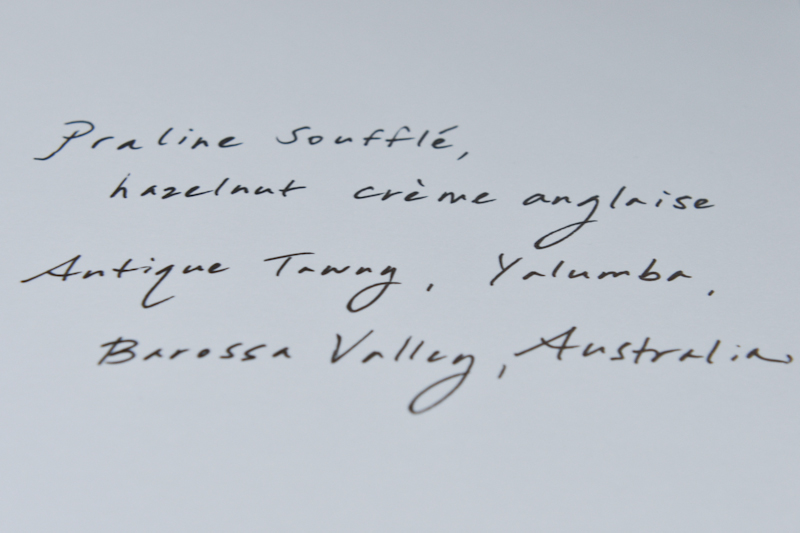 Praline Soufflé,
hazelnut crème anglaise
Antique Tawny, Yalumba,
Barossa Valley, Australia